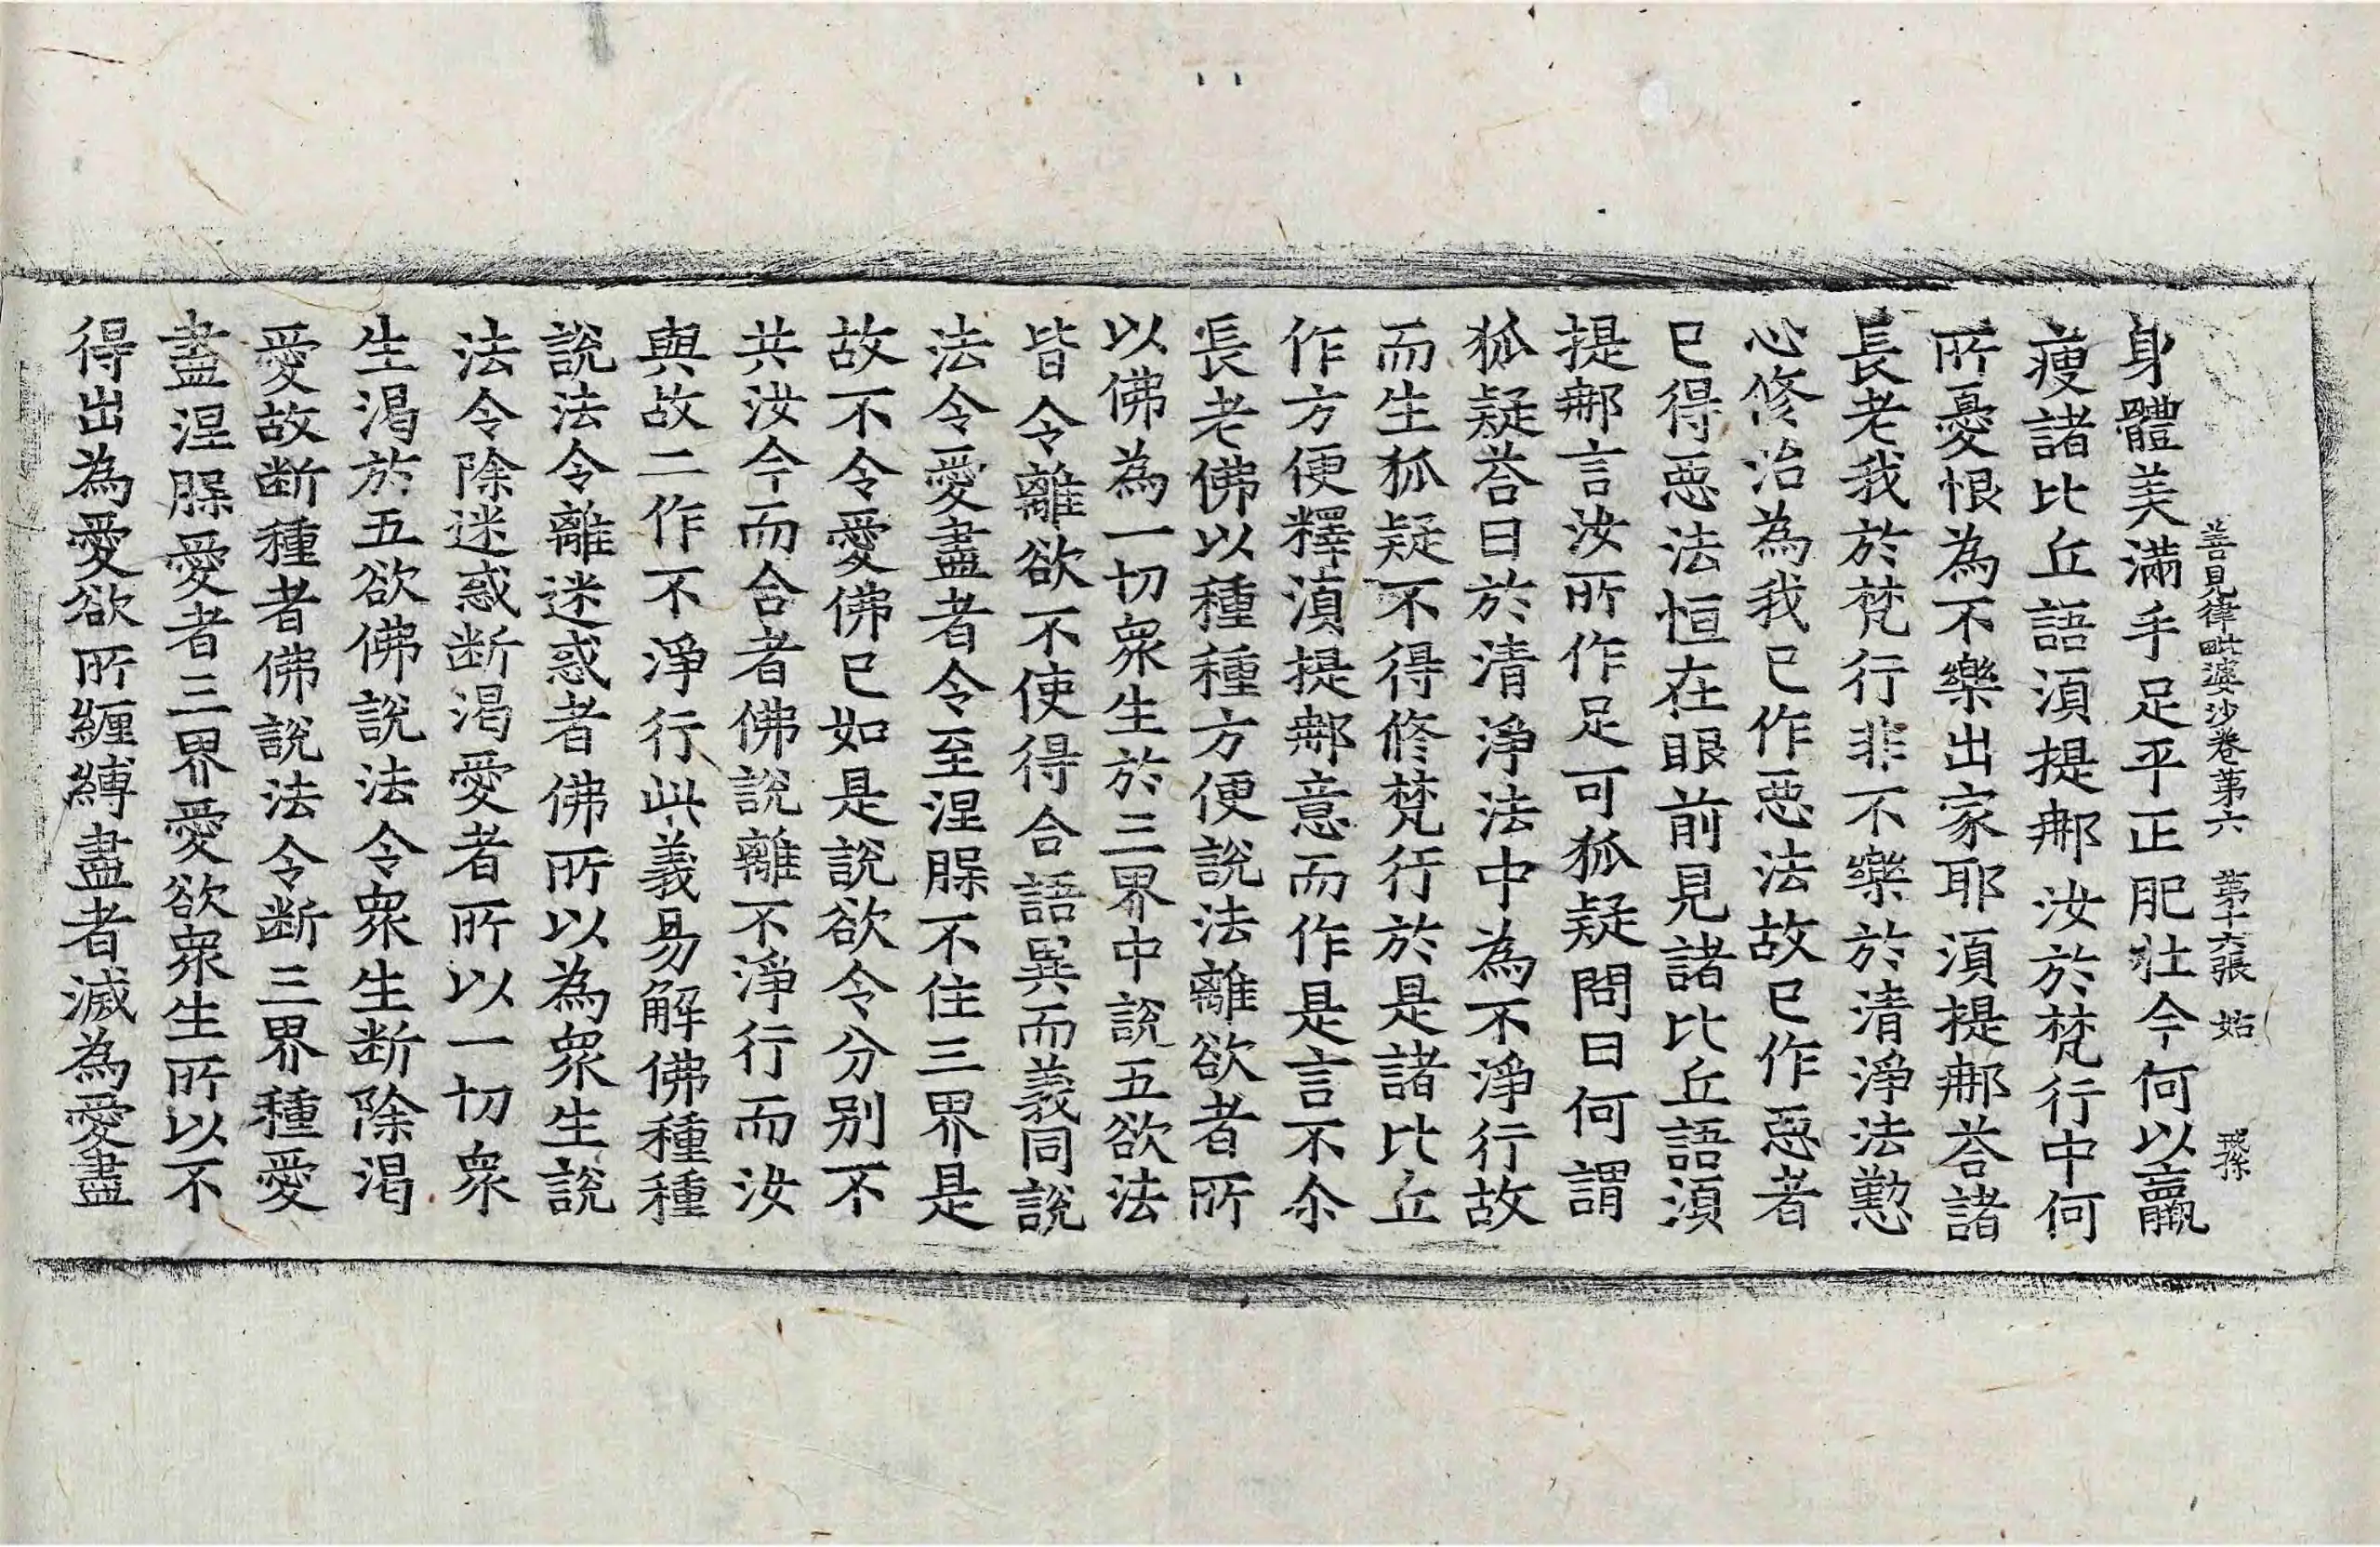 善見律毗婆沙卷第六 第十六張 姑
身體美滿手足平正肥壯今何以羸
瘦諸比丘語湏提𨚗汝於梵行中何
所憂恨為不樂出家耶湏提𨚗荅諸
長老我於梵行非不樂於清淨法懃
心修治為我已作惡法故已作惡者
已得惡法恒在眼前見諸比丘語湏
提𨚗言汝所作足可狐疑問曰何謂
狐疑荅曰於清淨法中為不淨行故
而生狐疑不得修梵行於是諸比丘
作方便釋湏提𨚗意而作是言不尒
長老佛以種種方便說法離欲者所
以佛為一切衆生於三界中說五欲法
皆令離欲不使得合語異而義同說
法令愛盡者令至涅槃不住三界是
故不令愛佛已如是說欲令分別不
共汝今而合者佛說離不淨行而汝
與故二作不淨行此義易解佛種種
說法令離迷惑者佛所以為衆生說
法令除迷惑断渴愛者所以一切衆
生渴於五欲佛說法令衆生断除渴
愛故断種者佛說法令断三界種愛
盡涅槃愛者三界愛欲衆生所以不
得出為愛欲所纏縛盡者滅為愛盡